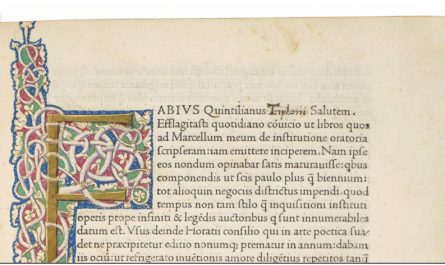 FABIUS Quintilianus Triphoni Salutem.
Efflagitasti quotidiano cōuicio ut libros quos
ad Marcellum meum de institutione oratoria
scripseram: iam emittere inciperem. Nam ipse
eos nondum opinabar satis maturauisse: qbus
componendis ut scis paulo plus q̄ biennium:
tot alioquin negociis districtus impendi. quod
tempus non tam stilo q̄ inquisitioni instituti
operis prope infiniti & legēdis auctoribus q̄ sunt innumerabiles
datum est. Vsus deinde Horatii consilio qui in arte poetica sua-
det ne præcipitetur editio nonumq; prematur in annum: dabam
iis ociū: ut refrigerato inuētionis amore diligētius repetitos tanq̄